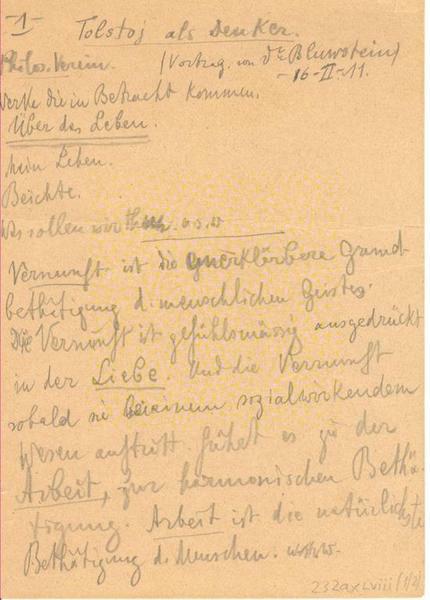 -1-
Tolstoj als Denker.
Philos. Verein. (Vortrag von Dr Bluwstein)
-16-II-11.
Werke die in Betracht kommen.
Über das Leben.
Mein Leben.
Beichte.
Was sollen wir thun. u.s.w
Vernunft ist die unerklärbare Grund-
bethätigung d. menschlichen Geistes.
Die Vernunft ist gefühlsmässig ausgedrückt
in der Liebe. Und die Vernunft
sobald sie bei einem sozialwirkendem
Wesen auftritt führt es zu der
Arbeit, zur harmonischen Bethä-
tigung. Arbeit ist die natürlichste
Bethätigung d. Menschen.
232axLviii (1/2)